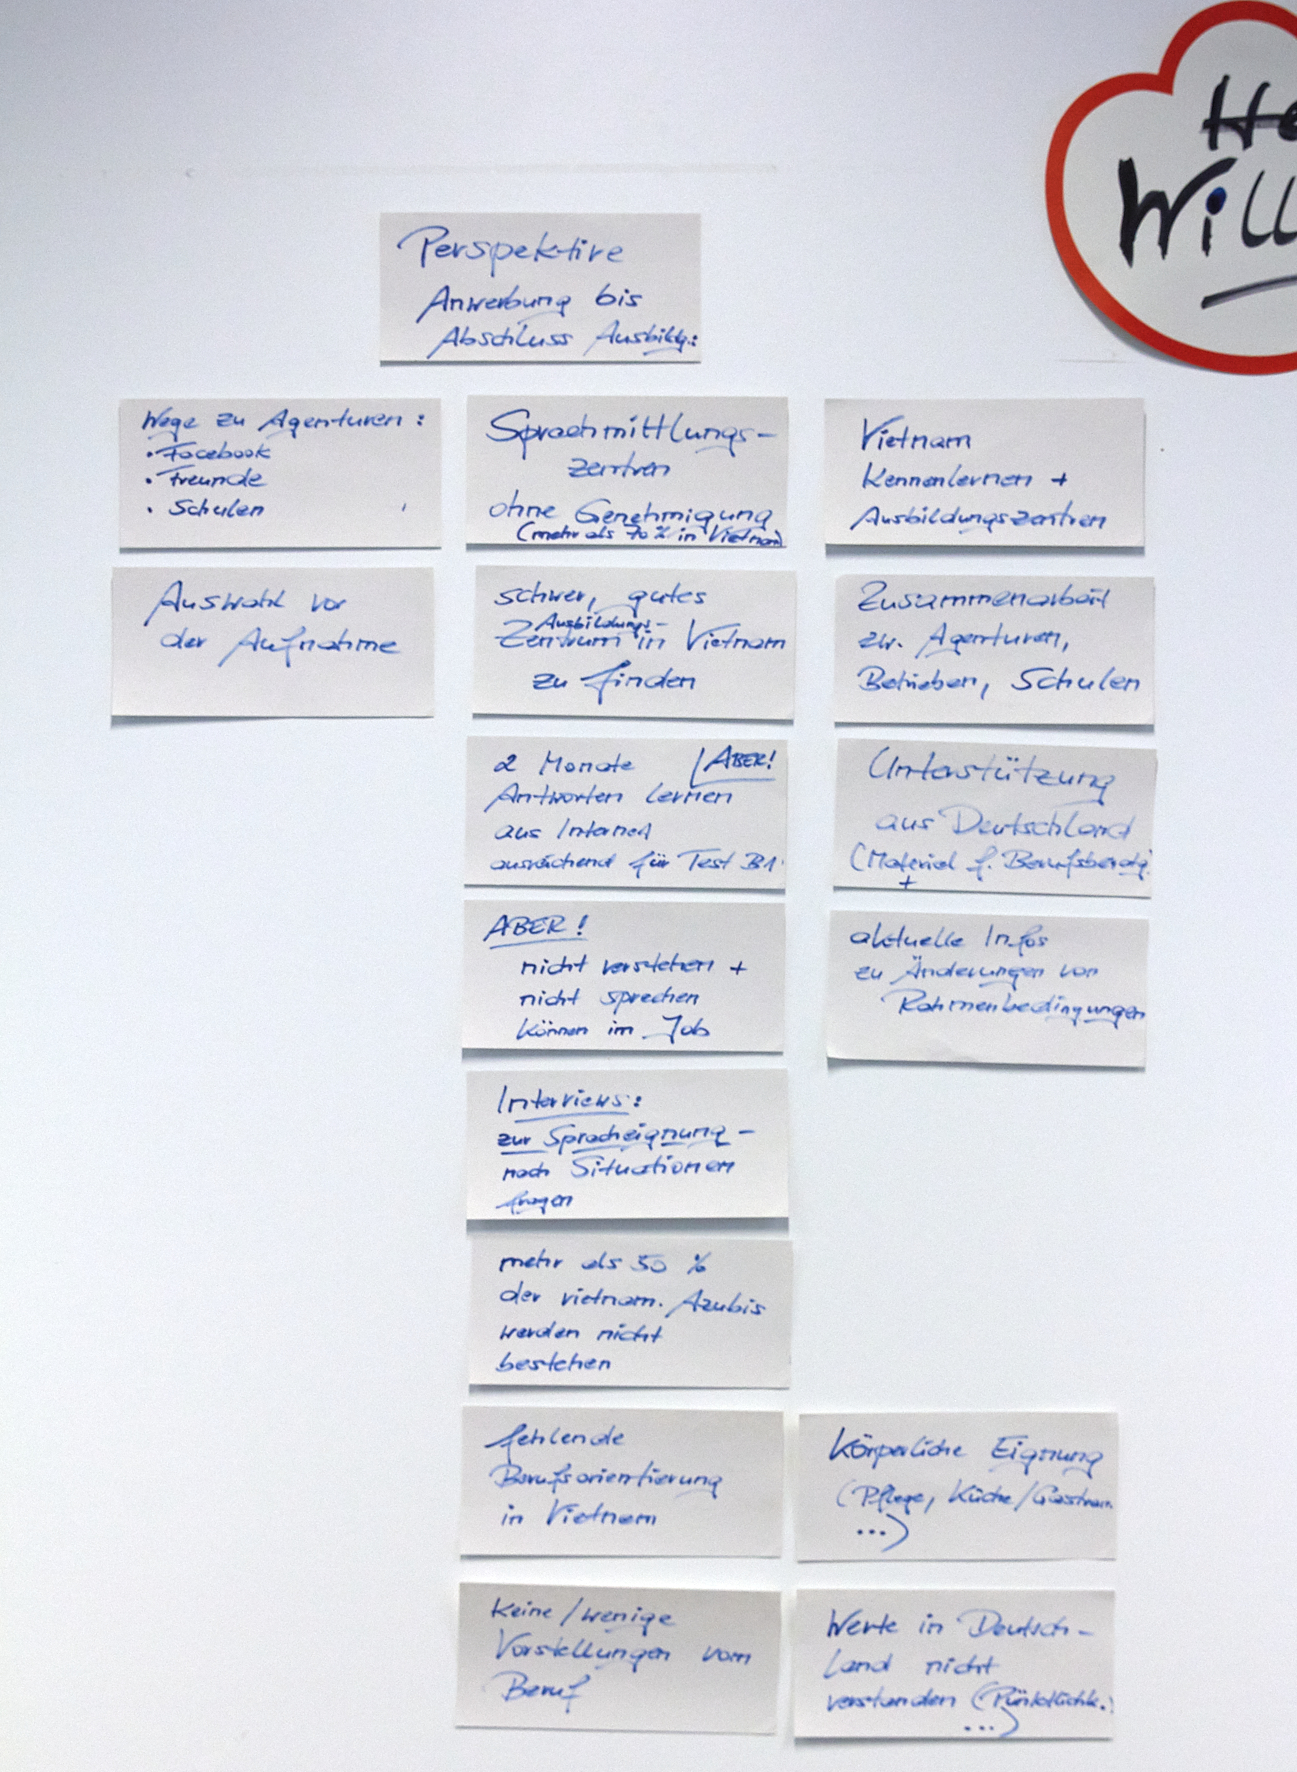 He
Will
Perspektive
Anwerbung bis
Abschluss Ausbildg.:
Wege zu Agenturen:
• Facebook
• Freunde
• Schulen
Auswahl vor
der Aufnahme
Sprachmittlungs-
zentren
ohne Genehmigung
(mehr als 70 % in Vietnam)
schwer, gutes
Ausbildungs-
Zentrum in Vietnam
zu finden
2 Monate ABER!
Antworten lernen
aus Internet
ausreichend für Test B1
ABER!
nicht verstehen +
nicht sprechen
können im Job
Interviews:
zur Spracheignung -
nach Situationen
fragen
mehr als 50 %
der vietnam. Azubis
werden nicht
bestehen
fehlende
Berufsorientierung
in Vietnam
Keine/wenige
Vorstellungen vom
Beruf
Vietnam
Kennenlernen +
Ausbildungszentren
Zusammenarbeit
zw. Agenturen,
Betrieben, Schulen
Unterstützung
aus Deutschland
(Material f. Berufsberatg.
+
aktuelle Infos
zu Änderungen von
Rahmenbedingungen
Körperliche Eignung
(Pflege, Küche/Gastron.
...)
Werte in Deutsch-
land nicht
verstanden (Pünktlichk.
...)